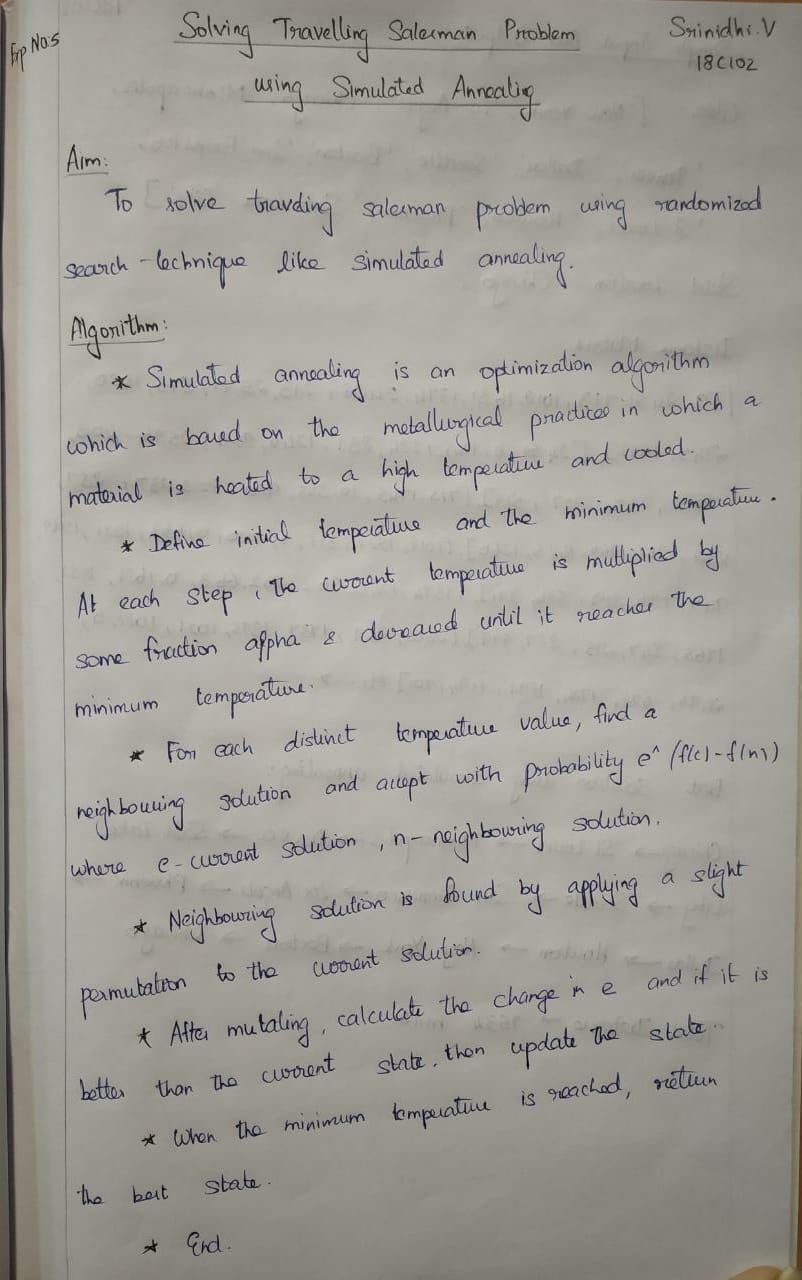 Exp No:5
Solving Travelling Salesman Problem
Srinidhi.V
18C102
using Simulated Annealing
Aim:
To solve traveling salesman problem using randomized
search-technique like simulated annealing.
Algorithm:
* Simulated annealing is an optimization algorithm
which is based on the metallurgical practices in which a
material is heated to a high temperature and cooled.
* Define initial temperature and the minimum temperature.
At each step, the current temperature is multiplied by
some fraction alpha & decreased until it reaches the
minimum temperature.
* For each distinct temperature value, find a
neighbouring solution and accept with probability e^(f(c)-f(n))
where c-current solution, n-neighbouring solution.
* Neighbouring solution is found by applying a slight
permutation to the current solution.
* After mutating, calculate the change in e and if it is
better than the current state, then update the state.
* When the minimum temperature is reached, return
the best state.
* End.